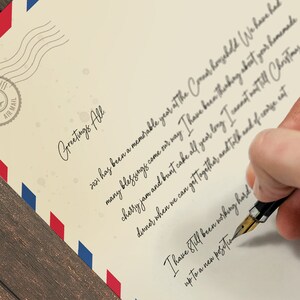 Greetings All
2021 has been a memorable year at the Conner household. We have had
many blessings come our way. I have been thinking about your homemade
cherry jam and bundt cake all year long. I cannot wait till Christmas
dinner when we can get together and talk and of course eat
I have still been working hard
up to a new position